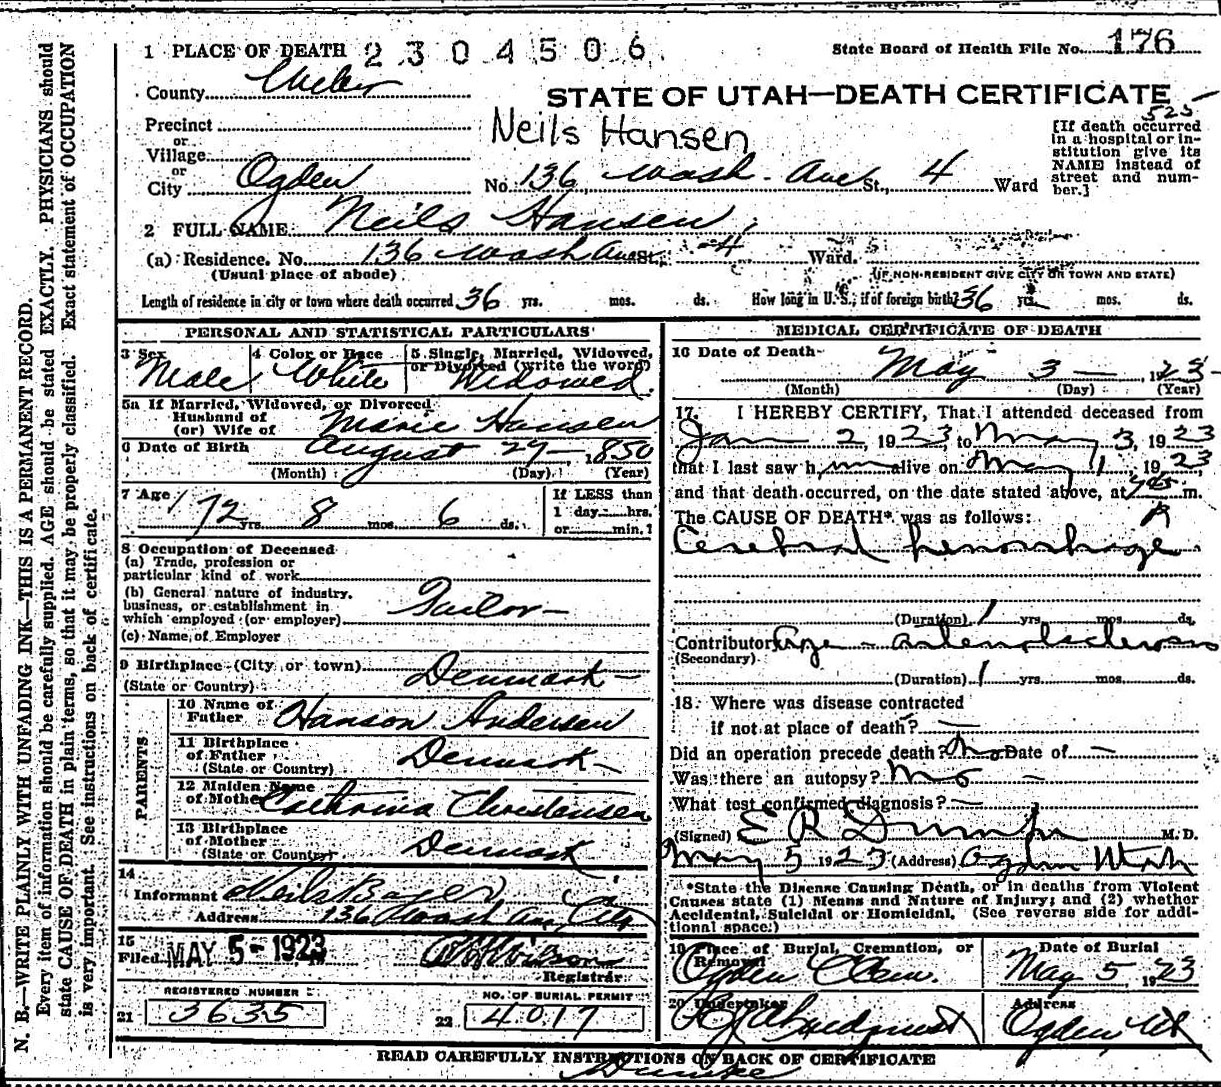 1 PLACE OF DEATH 2304506 State Board of Health File No. 176
County Weber
STATE OF UTAH—DEATH CERTIFICATE
525
Precinct
Neils Hansen
or
Village
or
City Ogden No. 136 Wash. Ave St., 4 Ward
[If death occurred
in a hospital or in-
stitution give its
NAME instead of
street and num-
ber.]
2 FULL NAME Neils Hansen
(a) Residence. No. 136 Wash Ave St., 4 Ward.
(Usual place of abode) (IF NON-RESIDENT GIVE CITY OR TOWN AND STATE)
Length of residence in city or town where death occurred 36 yrs. mos. ds. How long in U. S., if of foreign birth? 36 yrs. mos. ds.
PERSONAL AND STATISTICAL PARTICULARS
3 Sex 4 Color or Race 5 Single, Married, Widowed,
or Divorced (write the word)
Male White Widowed
5a If Married, Widowed, or Divorced
Husband of
(or) Wife of Marie Hansen
6 Date of Birth August 27 — 1850
(Month) (Day) (Year)
7 Age 72 yrs. 8 mos. 6 ds.
If LESS than
1 day hrs.
or min.?
8 Occupation of Deceased
(a) Trade, profession or
particular kind of work
(b) General nature of industry,
business, or establishment in
which employed (or employer) Tailor —
(c) Name of Employer
9 Birthplace (City or town) Denmark —
(State or Country)
PARENTS
10 Name of
Father Hanson Andersen
11 Birthplace
of Father Denmark —
(State or Country)
12 Maiden Name
of Mother Cathrina Christensen
13 Birthplace
of Mother Denmark
(State or Country)
14
Informant Neils
Address 136 Wash Ave, City
15
Filed MAY 5 - 1923 Wilson
Registrar
REGISTERED NUMBER NO. OF BURIAL PERMIT
21 3635 22 4017
MEDICAL CERTIFICATE OF DEATH
16 Date of Death May 3 — 1923
(Month) (Day) (Year)
17. I HEREBY CERTIFY, That I attended deceased from
Jan 2, 1923 to May 3, 1923
that I last saw him alive on May 1, 1923
and that death occurred, on the date stated above, at m.
The CAUSE OF DEATH* was as follows:
Cerebral hemorrhage
(Duration) 1 yrs. mos. ds.
Contributory Age - arteriosclerosis
(Secondary)
(Duration) 1 yrs. mos. ds.
18. Where was disease contracted
if not at place of death? —
Did an operation precede death? No Date of —
Was there an autopsy? no —
What test confirmed diagnosis? —
(Signed) E R Dumke M. D.
May 5 1923 (Address) Ogden Utah
*State the Disease Causing Death, or in deaths from Violent
Causes state (1) Means and Nature of Injury; and (2) whether
Accidental, Suicidal or Homicidal. (See reverse side for addi-
tional space.)
19 Place of Burial, Cremation, or
Removal
Date of Burial
Ogden C Cem. May 5, 1923
20 Undertaker Address
Ogden, Ut
READ CAREFULLY INSTRUCTIONS ON BACK OF CERTIFICATE
Dumke
N. B.—WRITE PLAINLY WITH UNFADING INK—THIS IS A PERMANENT RECORD.
Every item of information should be carefully supplied. AGE should be stated EXACTLY. PHYSICIANS should
state CAUSE OF DEATH in plain terms, so that it may be properly classified. Exact statement of OCCUPATION
is very important. See instructions on back of certificate.